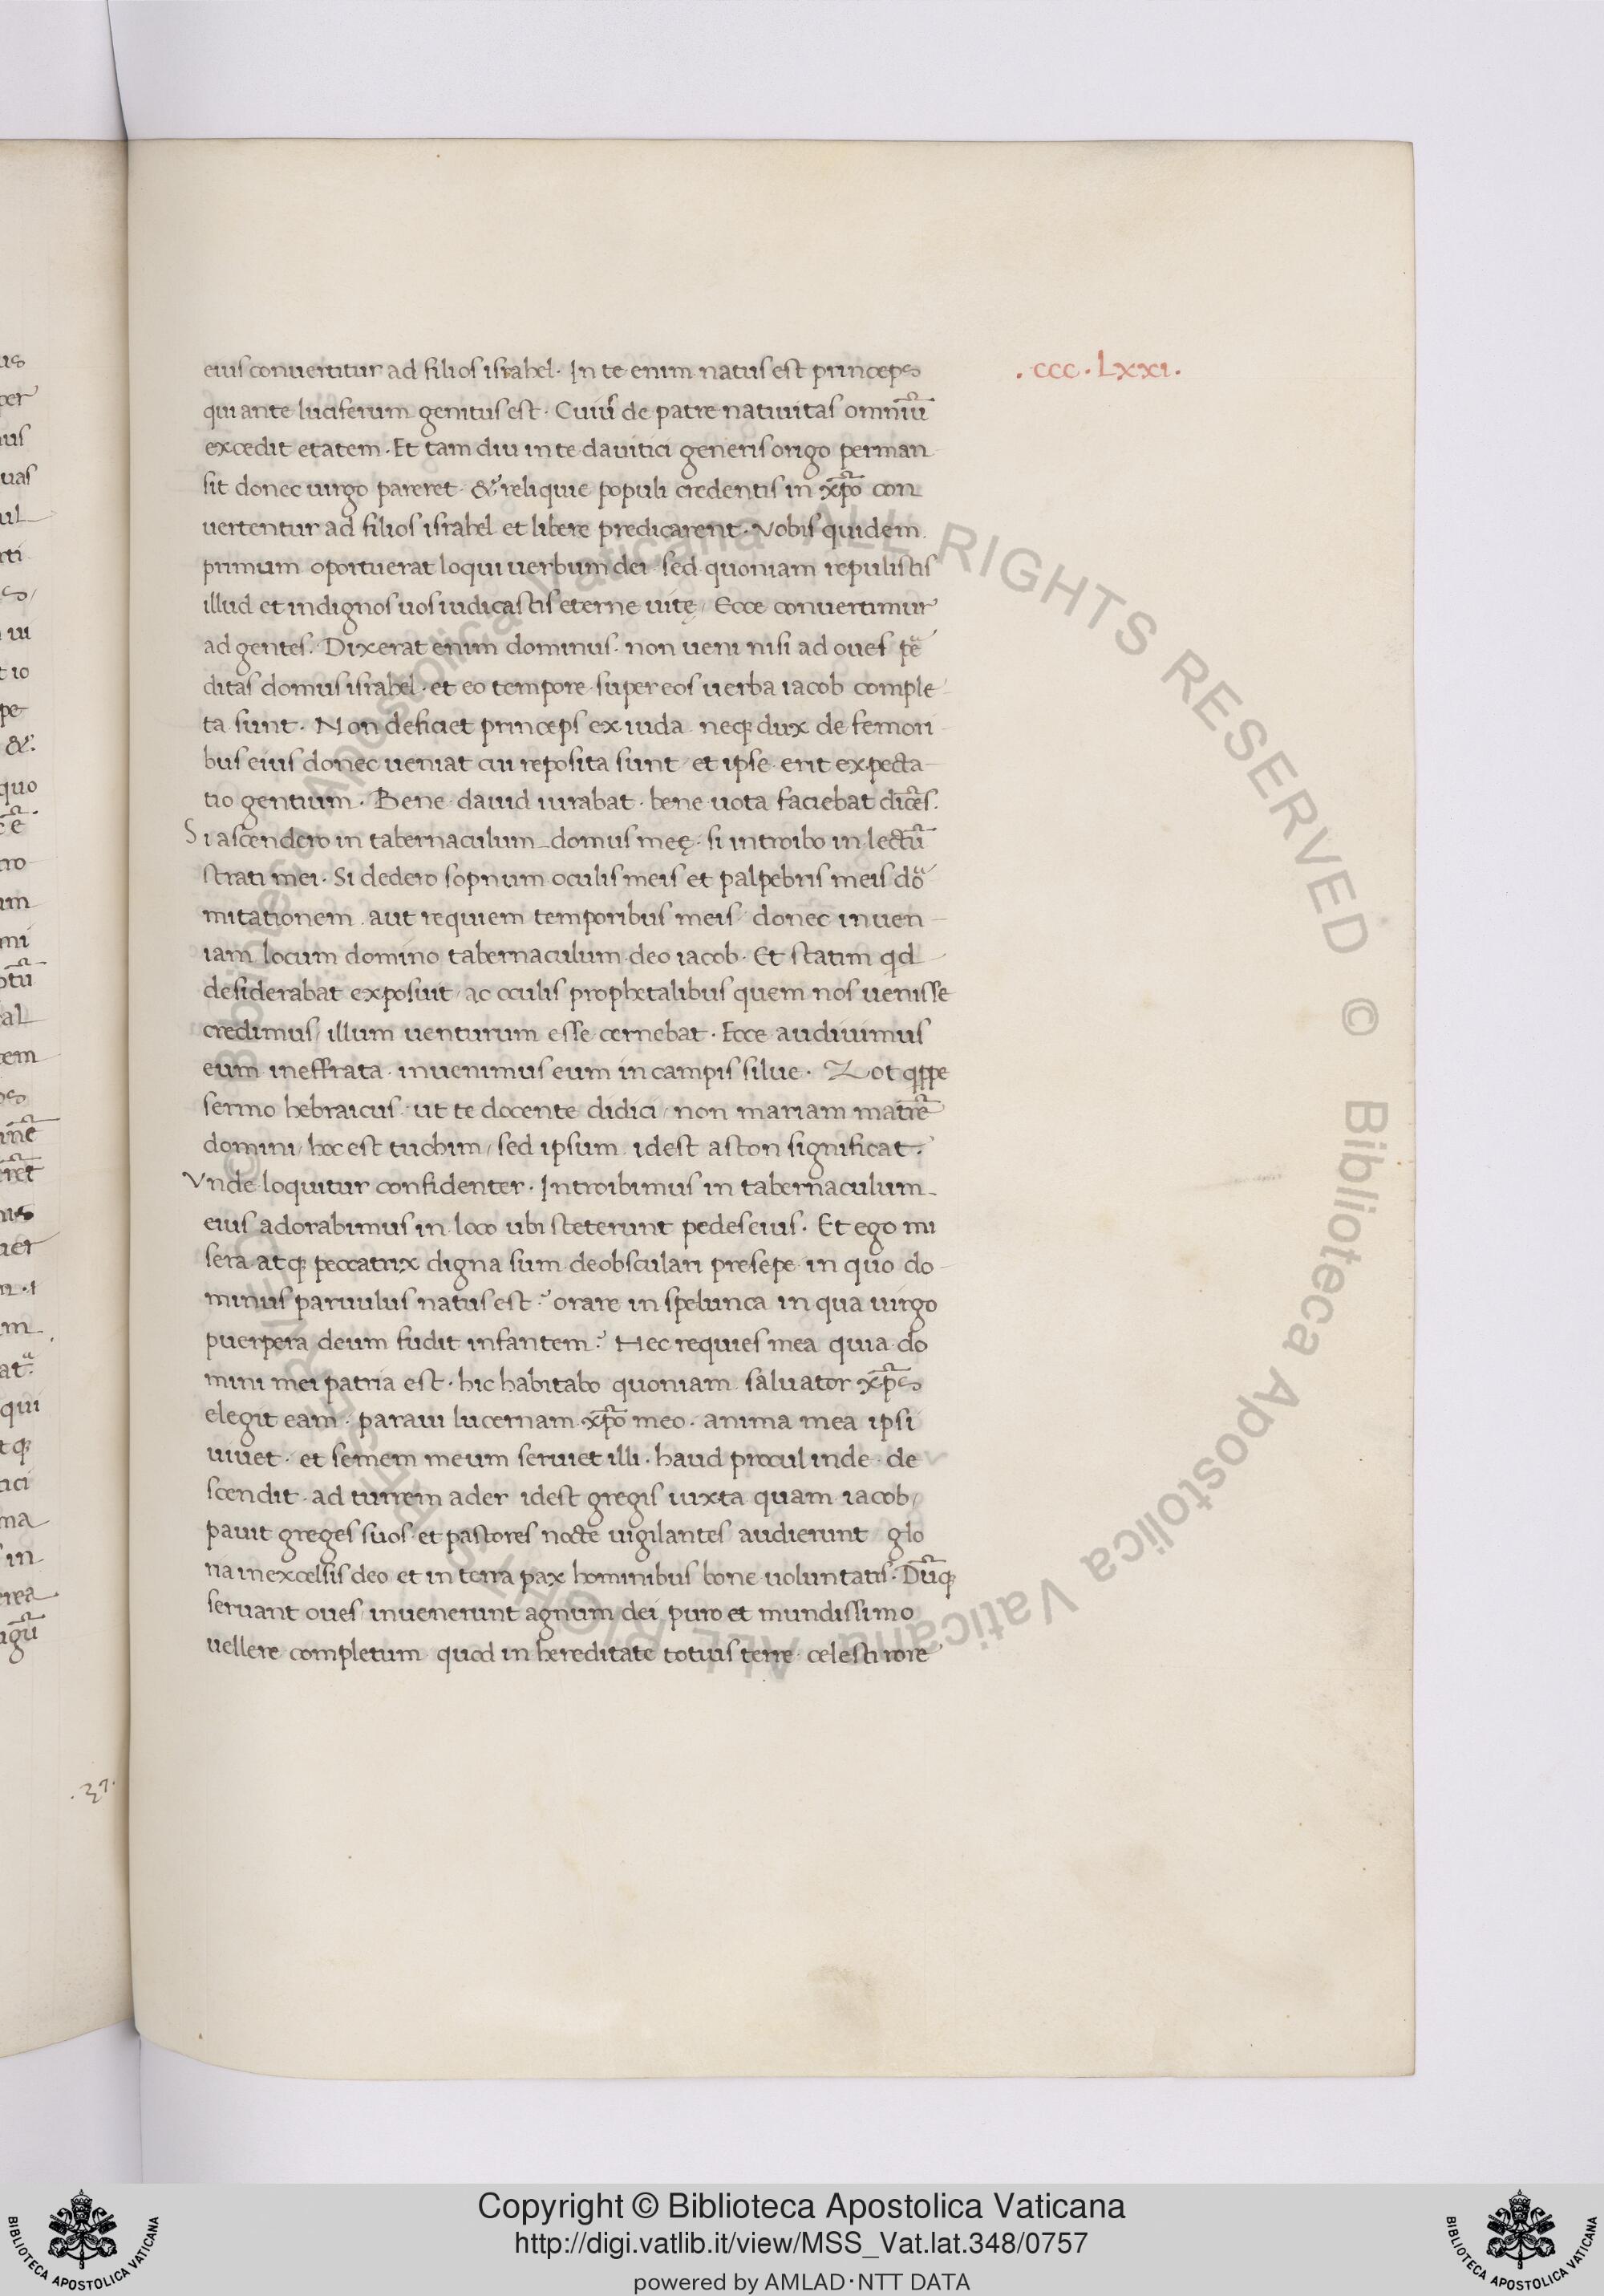 eius conuertitur ad filios israhel · In te enim natus est princeps
. ccc . Lxxi .
qui ante luciferum genitus est · Cuius de patre natiuitas omniū
excedit etatem · Et tam diu in te dauitici generis origo perman
sit donec uirgo pareret · & reliquie populi credentis in xp̄o con
uertentur ad filios israhel et libere predicarent · Vobis quidem
primum oportuerat loqui uerbum dei sed quoniam repulistis
illud et indignos uos iudicastis eterne uitę / Ecce conuertimur
ad gentes. Dixerat enim dominus · non ueni nisi ad oues p̱e
ditas domus israhel · et eo tempore super eos uerba iacob comple
ta sunt · Non deficiet princeps ex iuda neq; dux de femori
bus eius donec ueniat cui reposita sunt / et ipse erit expecta
tio gentium · Bene dauid iurabat · bene uota faciebat dicēs.
Si ascendero in tabernaculum domus meę · si introibo in lectū
strati mei · Si dedero sopnum oculis meis et palpebris meis do
mitationem aut requiem temporibus meis donec inuen
iam locum domino tabernaculum deo iacob · Et statim qd
desiderabat exposuit / ac oculis prophetalibus quem nos uenisse
credimus / illum uenturum esse cernebat · Ecce audiuimus
eum in effrata · inuenimus eum in campis silue · Zot q̱ppe
sermo hebraicus ut te docente didici / non mariam matrē
domini / hoc est tuchim / sed ipsum idest aston significat.
Vnde loquitur confidenter · Introibimus in tabernaculum
eius adorabimus in loco ubi steterunt pedes eius · Et ego mi
sera atq; peccatrix digna sum deobsculari presepe in quo do
minus paruulus natus est ? orare in spelunca in qua uirgo
puerpera deum fudit infantem ? Hec requies mea quia do
mini mei patria est · hic habitabo quoniam saluator xp̄s
elegit eam · paraui lucernam xp̄o meo · anima mea ipsi
uiuet · et semem meum seruiet illi · haud procul inde de
scendit · ad turrem ader idest gregis iuxta quam iacob /
pauit greges suos et pastores nocte uigilantes audierunt glo
ria in excelsis deo et in terra pax hominibus bone uoluntatis · Dūq;
seruant oues / inuenerunt agnum dei puro et mundissimo
uellere completum quod in hereditate totius terre celesti rore
. 37 .
© Biblioteca Apostolica Vaticana ALL RIGHTS RESERVED © Biblioteca Apostolica Vaticana ALL RIGHTS RESERVED
Copyright © Biblioteca Apostolica Vaticana
http://digi.vatlib.it/view/MSS_Vat.lat.348/0757
powered by AMLAD·NTT DATA
BIBLIOTECA APOSTOLICA VATICANA
BIBLIOTECA APOSTOLICA VATICANA